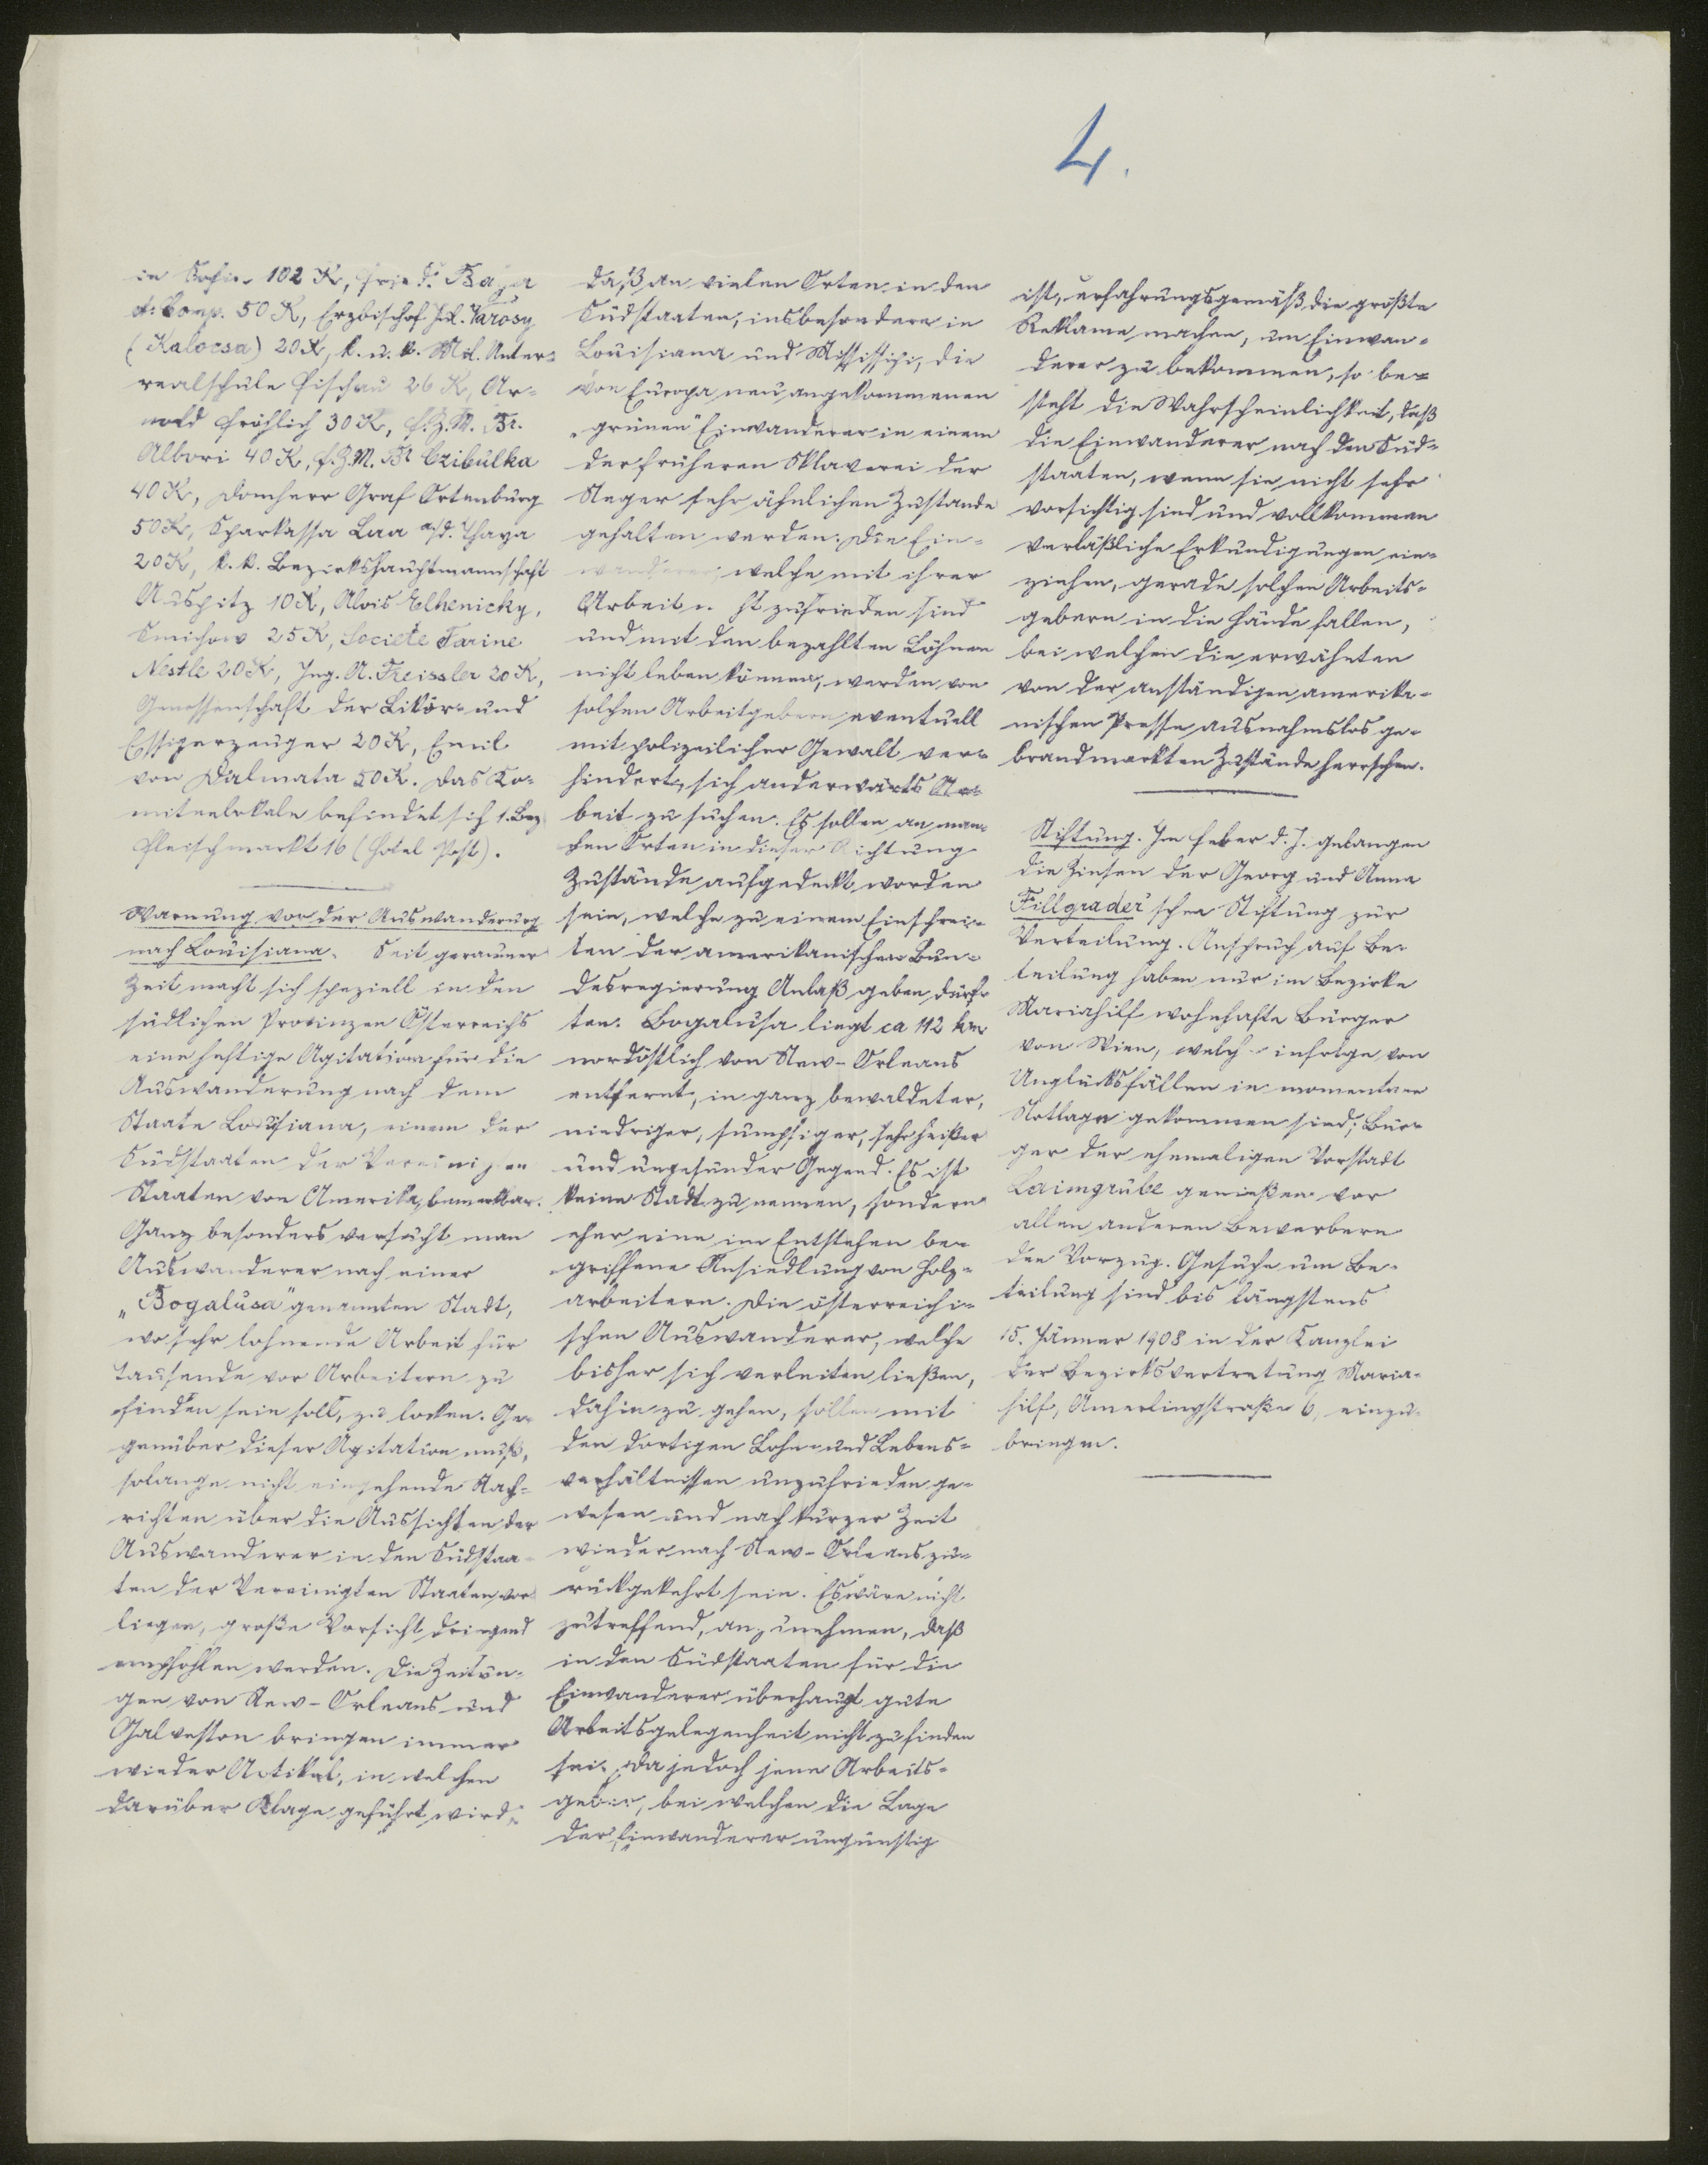 4.
in Sofia 102 K, Frid. Bayer
& Comp. 50 K, Erzbischof Jul. Varosy
(Kalocsa) 20 K, k. u. k. Mil. Unter-
realschule Fischau 26 K, Ar-
nold Fröhlich 30 K, F.Z.M. Br.
Albori 40 K, F.Z.M. Br Czibulka
40 K, Domherr Graf Ortenburg
50 K, Sparkassa Laa a/d. Thaya
20 K, k. k. Bezirkshauptmannschaft
Auspitz 10 K, Alois Elhenicky,
Smichow 25 K, Societe Farine
Nestle 20 K, Ing. A. Freissler 20 K,
Genossenschaft der Likör- und
Essigerzeuger 20 K, Emil
von Dalmata 50 K. Das Ko-
miteelokale befindet sich 1. Bez.
Fleischmarkt 16 (Hotel Post).
Warnung vor der Auswanderung
nach Louisiana. Seit geraumer
Zeit macht sich speziell in den
südlichen Provinzen Österreichs
eine heftige Agitation für die
Auswanderung nach dem
Staate Louisiana, einem der
Südstaaten der Vereinigten
Staaten von Amerika, bemerkbar.
Ganz besonders versucht man
Auswanderer nach einer
„Bogalusa" genannten Stadt,
wo sehr lohnende Arbeit für
Tausende von Arbeitern zu
finden sein soll, zu locken. Ge-
genüber dieser Agitation muß,
solange nicht eingehende Nach-
richten über die Aussichten der
Auswanderer in den Südstaa-
ten der Vereinigten Staaten vor-
liegen, große Vorsicht dringend
empfohlen werden. Die Zeitun-
gen von New-Orleans und
Galveston bringen immer
wieder Artikel, in welchen
darüber Klage geführt wird,
daß an vielen Orten in den
Südstaaten, insbesondere in
Louisiana und Mississipi, die
von Europa neu angekommenen
„grünen" Einwanderer in einem
der früheren Sklaverei der
Neger sehr ähnlichen Zustande
gehalten werden. Die Ein-
wanderer, welche mit ihrer
Arbeit nicht zufrieden sind
und mit den bezahlten Löhnen
nicht leben können, werden von
solchen Arbeitgebern eventuell
mit polizeilicher Gewalt ver-
hindert, sich anderwärts Ar-
beit zu suchen. Es sollen an man-
chen Orten in dieser Richtung
Zustände aufgedeckt worden
sein, welche zu einem Einschrei-
ten der amerikanischen Bun-
desregierung Anlaß geben dürf-
ten. Bogalusa liegt ca 112 km
nordöstlich von New-Orleans
entfernt, in ganz bewaldeter,
niedriger, sumpfiger, sehr heißer
und ungesunder Gegend. Es ist
keine Stadt zu nennen, sondern
eher eine im Entstehen be-
griffene Ansiedlung von Holz-
arbeitern. Die österreichi-
schen Auswanderer, welche
bisher sich verleiten ließen,
dahin zu gehen, sollen mit
den dortigen Lohn- und Lebens-
verhältnissen unzufrieden ge-
wesen und nach kurzer Zeit
wieder nach New-Orleans zu-
rückgekehrt sein. Es wäre nicht
zutreffend, anzunehmen, daß
in den Südstaaten für die
Einwanderer überhaupt gute
Arbeitsgelegenheit nicht zu finden
sei. Da jedoch jene Arbeits-
geber, bei welchen die Lage
der Einwanderer ungünstig
ist, erfahrungsgemäß die größte
Reklame machen, um Einwan-
derer zu bekommen, so be-
steht die Wahrscheinlichkeit, daß
die Einwanderer nach den Süd-
staaten, wenn sie nicht sehr
vorsichtig sind und vollkommen
verläßliche Erkundigungen ein-
ziehen, gerade solchen Arbeits-
gebern in die Hände fallen,
bei welchen die erwähnten
von der anständigen amerika-
nischen Presse ausnahmslos ge-
brandmarkten Zustände herrschen.
Stiftung. Im Feber d. J. gelangen
die Zinsen der Georg und Anna
Fillgrader'schen Stiftung zur
Verteilung. Anspruch auf Be-
teilung haben nur im Bezirke
Mariahilf wohnhafte Bürger
von Wien, welche infolge von
Unglücksfällen in momentaner
Notlage gekommen sind; Bür-
ger der ehemaligen Vorstadt
Laimgrube genießen vor
allen anderen Bewerbern
den Vorzug. Gesuche um Be-
teilung sind bis längstens
15. Jänner 1908 in der Kanzlei
der Bezirksvertretung Maria-
hilf, Amerlingstraße 6, einzu-
bringen.